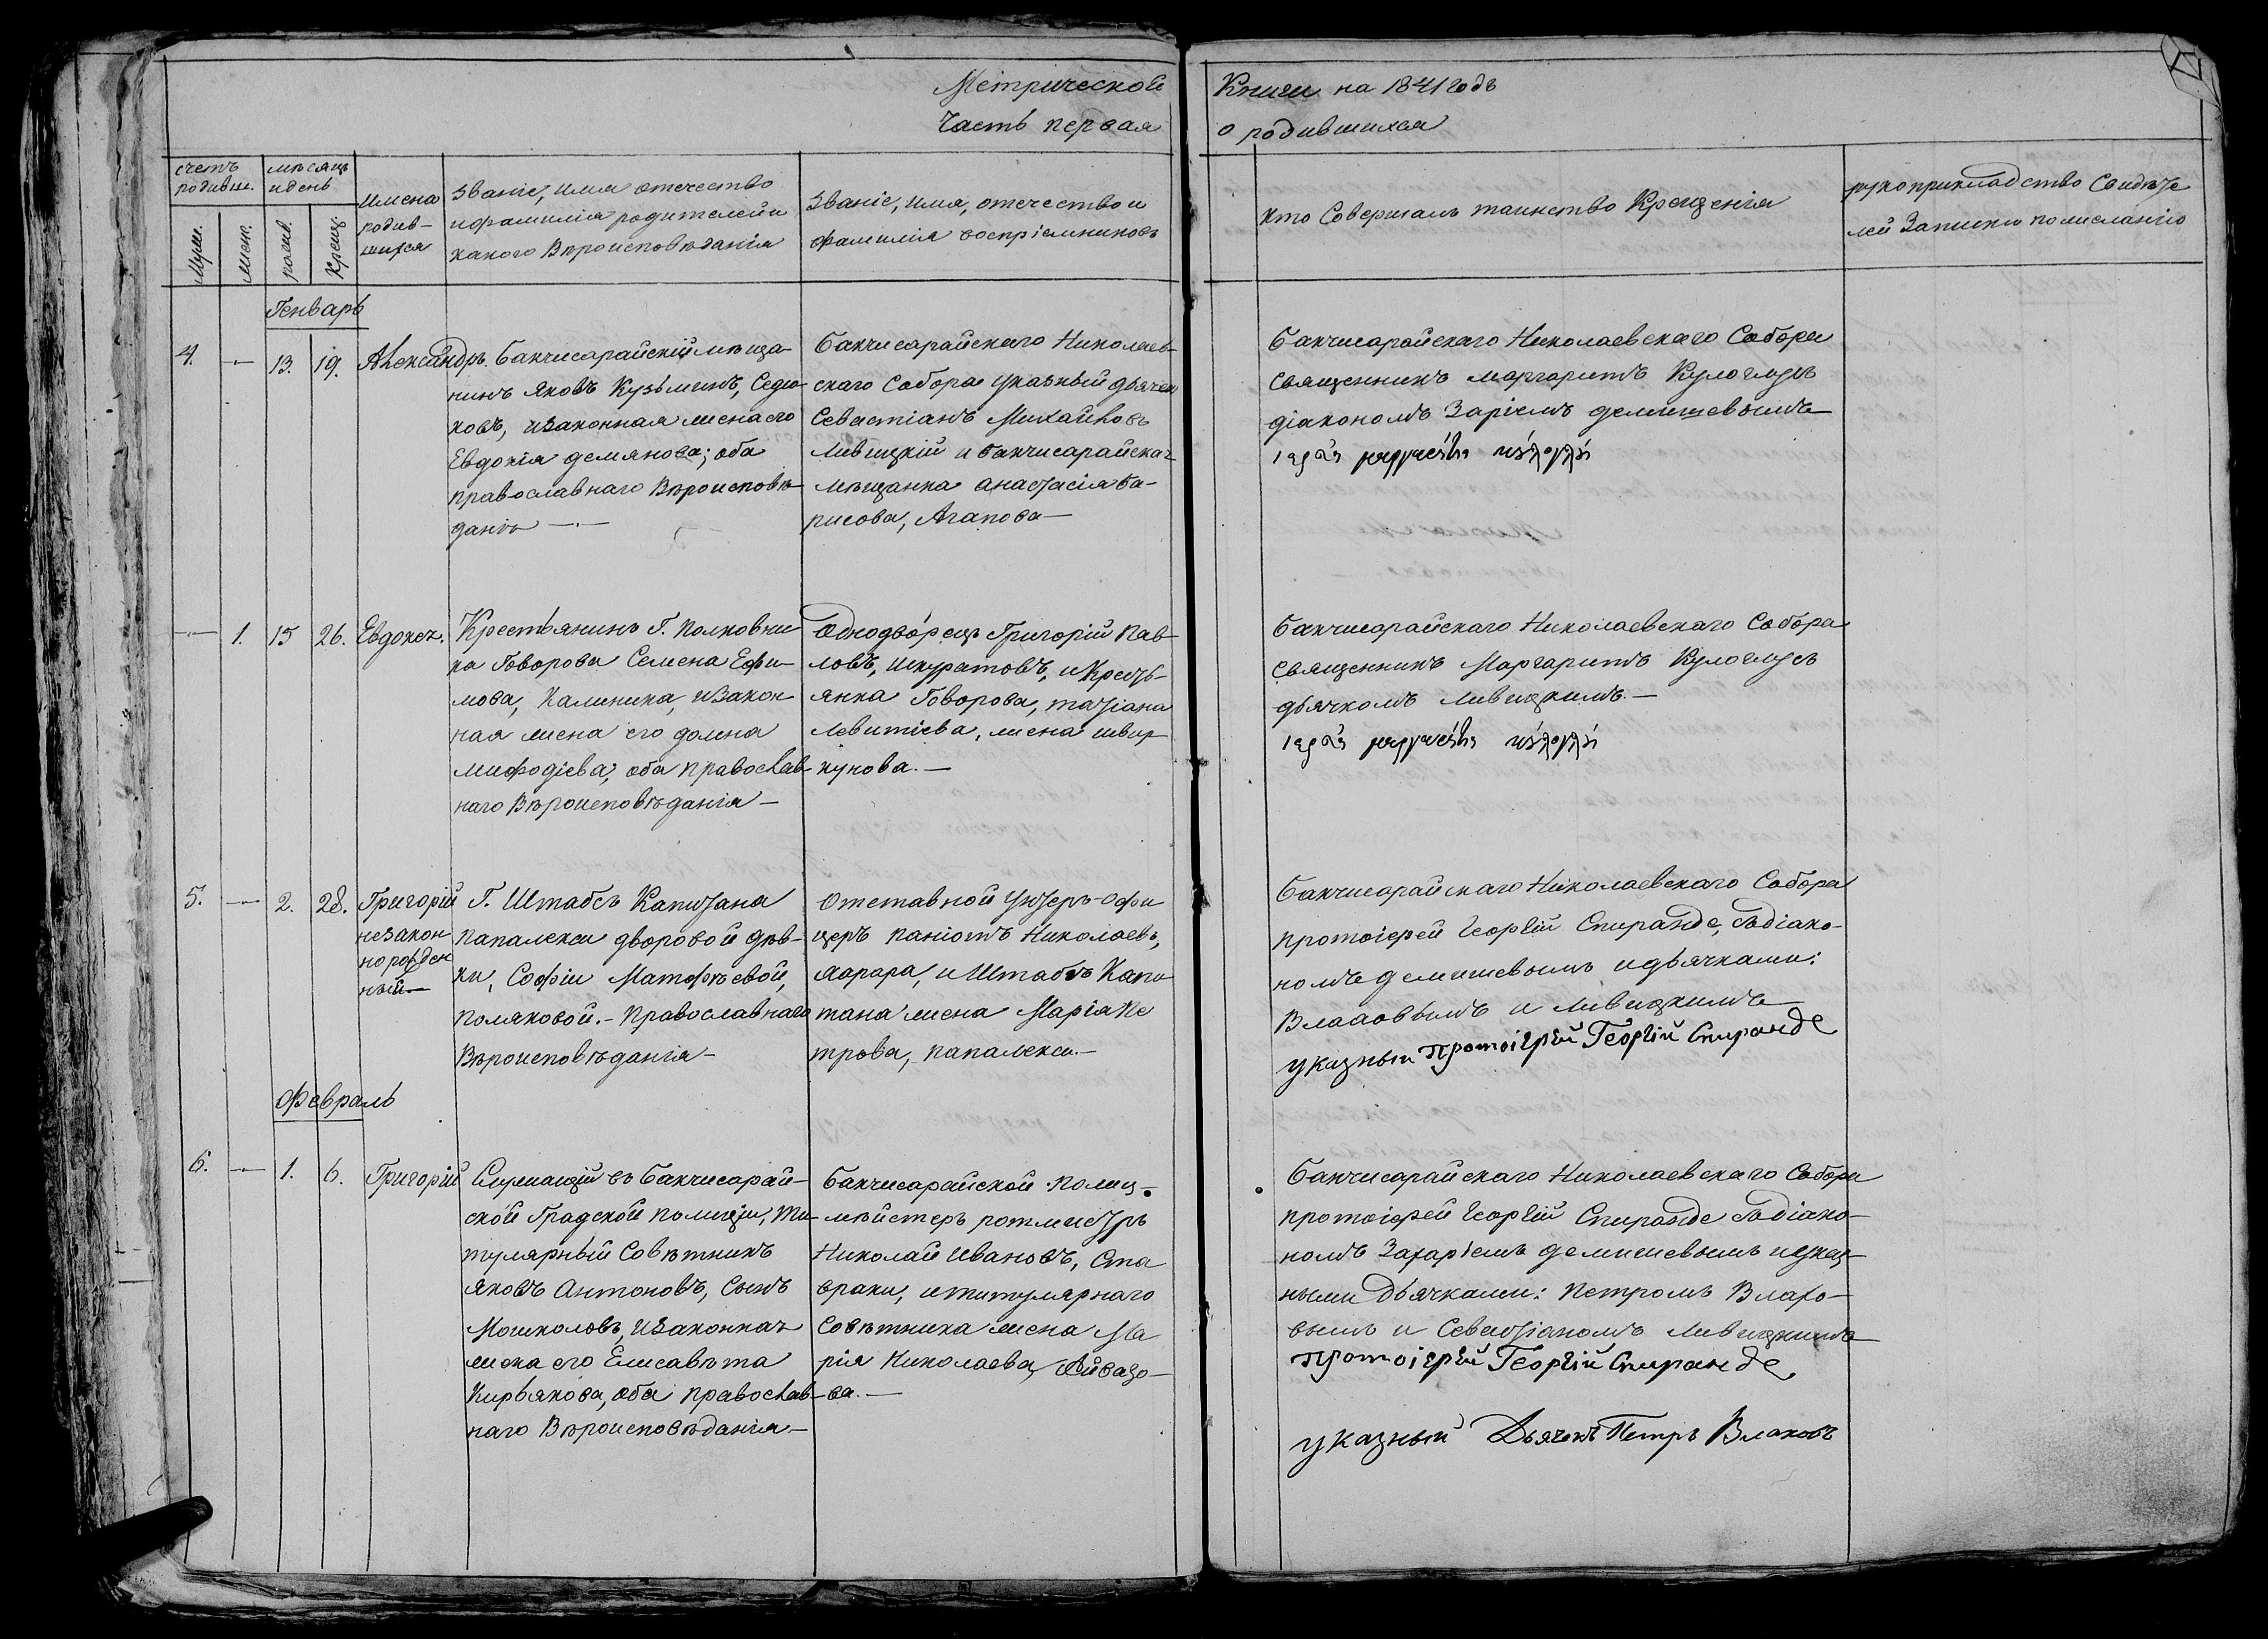 Метрической
Часть первая
Книги на 1841 годъ
о родившихся
счетъ родивш.
мѣсяцъ и день
Муж.
Женс.
рожд.
Крещ.
Имена
родив-
шихся
Званіе, имя отечество
и фамилія родителей и
какого Вѣроисповѣданія
Званіе, имя, отечество и
фамилія воспріемниковъ
кто Совершалъ таинство Крещенія
рукоприкладство Свидѣте
лей Записки по желанію
Генварь
4. — 13. 19. Александръ.
Бакчисарайскій мѣща-
нинъ Яковъ Кузьминъ, Седю-
ковъ, и законная жена его
Евдокія демянова; оба
православнаго Вѣроисповѣ-
данія —
Бакчисарайскаго Николаев-
скаго Собора указный дьячек
Севастіанъ Михайловъ
Ливицкій и бакчисарайская
мѣщанка анастасія Ба-
рисова, Агапова —
Бакчисарайскаго Николаевскаго Собора
священникъ Маргаритъ Кулоглусъ
діакономъ Заріемъ демишевымъ
— 1. 15 26. Евдокея.
Крестьянинъ Г. Полковни
ка Говорова Семена Ефи-
мова, Калинина, и Закон
ная жена его домна
Мифодіева; оба православ
наго Вѣроисповѣданія —
Однодворецъ Григорій Пав-
ловъ, шкуратовъ, и Кресть-
янка Говорова, татіана
Левитіева, жена швир
кунова. —
Бакчисарайскаго Николаевскаго Собора
священникъ Маргаритъ Кулоглусъ
дьячкомъ Ливицкимъ. —
5. — 2. 28. Григорій
незакон
норожден
ный —
Г. Штабсъ Капитана
папалекси дворовой дѣв-
ки, Софіи Матфѣевой,
Поляковой. — Православнаго
Вѣроисповѣданія —
Отставной Унтеръ-Офи
церъ паніотъ Николаевъ,
Марара, и Штабсъ Капи
тана жена Марія Пе
трова, папалекси. —
Бакчисарайскаго Николаевскаго Собора
протоіерей Георгій Спиранде, съ діако-
номъ демишевымъ и дьячками:
Влаховымъ и Ливицкимъ
указный протоіерей Георгій Спиранде
Февраль
6. — 1. 6. Григорій
Служащій въ бакчисарай-
ской Градской полиціи, ти
тулярный Совѣтникъ
Яковъ Антоновъ, Сынъ
Мошколовъ, и Законная
жена его Елисавѣта
Кирьякова, оба православ-
наго Вѣроисповѣданія —
Бакчисарайской полиц-
мѣйстеръ ротмистръ
Николай Ивановъ, Ста
враки, и титулярнаго
Совѣтника жена Ма
рія Николаева, Айвазо-
ва. —
Бакчисарайскаго Николаевскаго Собора
протоіерей Георгій Спиранде съ діако-
номъ Захаріемъ демишевымъ и указ-
ными Дьячками: Петромъ Влахо-
вымъ и Севастіаномъ Ливицкимъ
протоіерей Георгій Спиранде
указный Дьячекъ Петръ Влаховъ